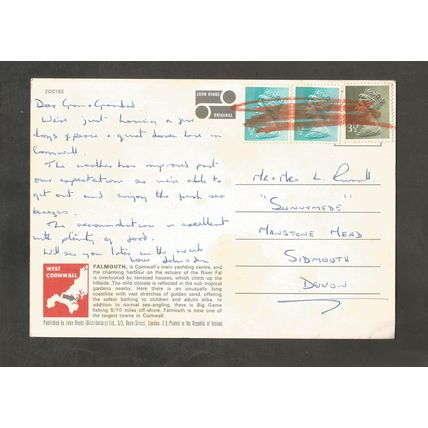 2DC163
JOHN HINDE
ORIGINAL
½P
½P
3½P
Dear Gran & Grandad.
We're just having a few
days of peace & quiet down here in
Cornwall.
The weather has improved past
our expectations so we're able to
get out and enjoy the fresh sea
breezes.
The accommodation is excellent
with plenty of food.
Will see you later in the week
love
Mr & Mrs L. Russell.
"SUNNYMEDE"
MANSTONE MEAD
SIDMOUTH
DEVON
WEST
CORNWALL
FALMOUTH, is Cornwall's main yachting centre, and
the charming harbour on the estuary of the River Fal
is overlooked by terraced houses, which climb up the
hillside. The mild climate is reflected in the sub-tropical
gardens nearby. Here there is an unusually long
coastline with vast stretches of golden sand, offering
the safest bathing to children and adults alike. In
addition to normal sea-angling, there is Big Game
fishing 5/10 miles off-shore. Falmouth is now one of
the largest towns in Cornwall.
Published by John Hinde (Distributors) Ltd., Street, London, E.C. Printed in the Republic of Ireland.